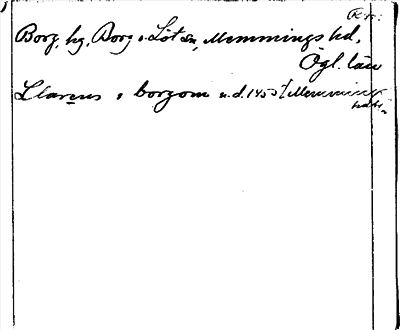 Borg, hg, Borg o. Löt sn, Memmings hd,
Ögl. län
Llarens i borgom u.d. 1453 [Memming
hdh.